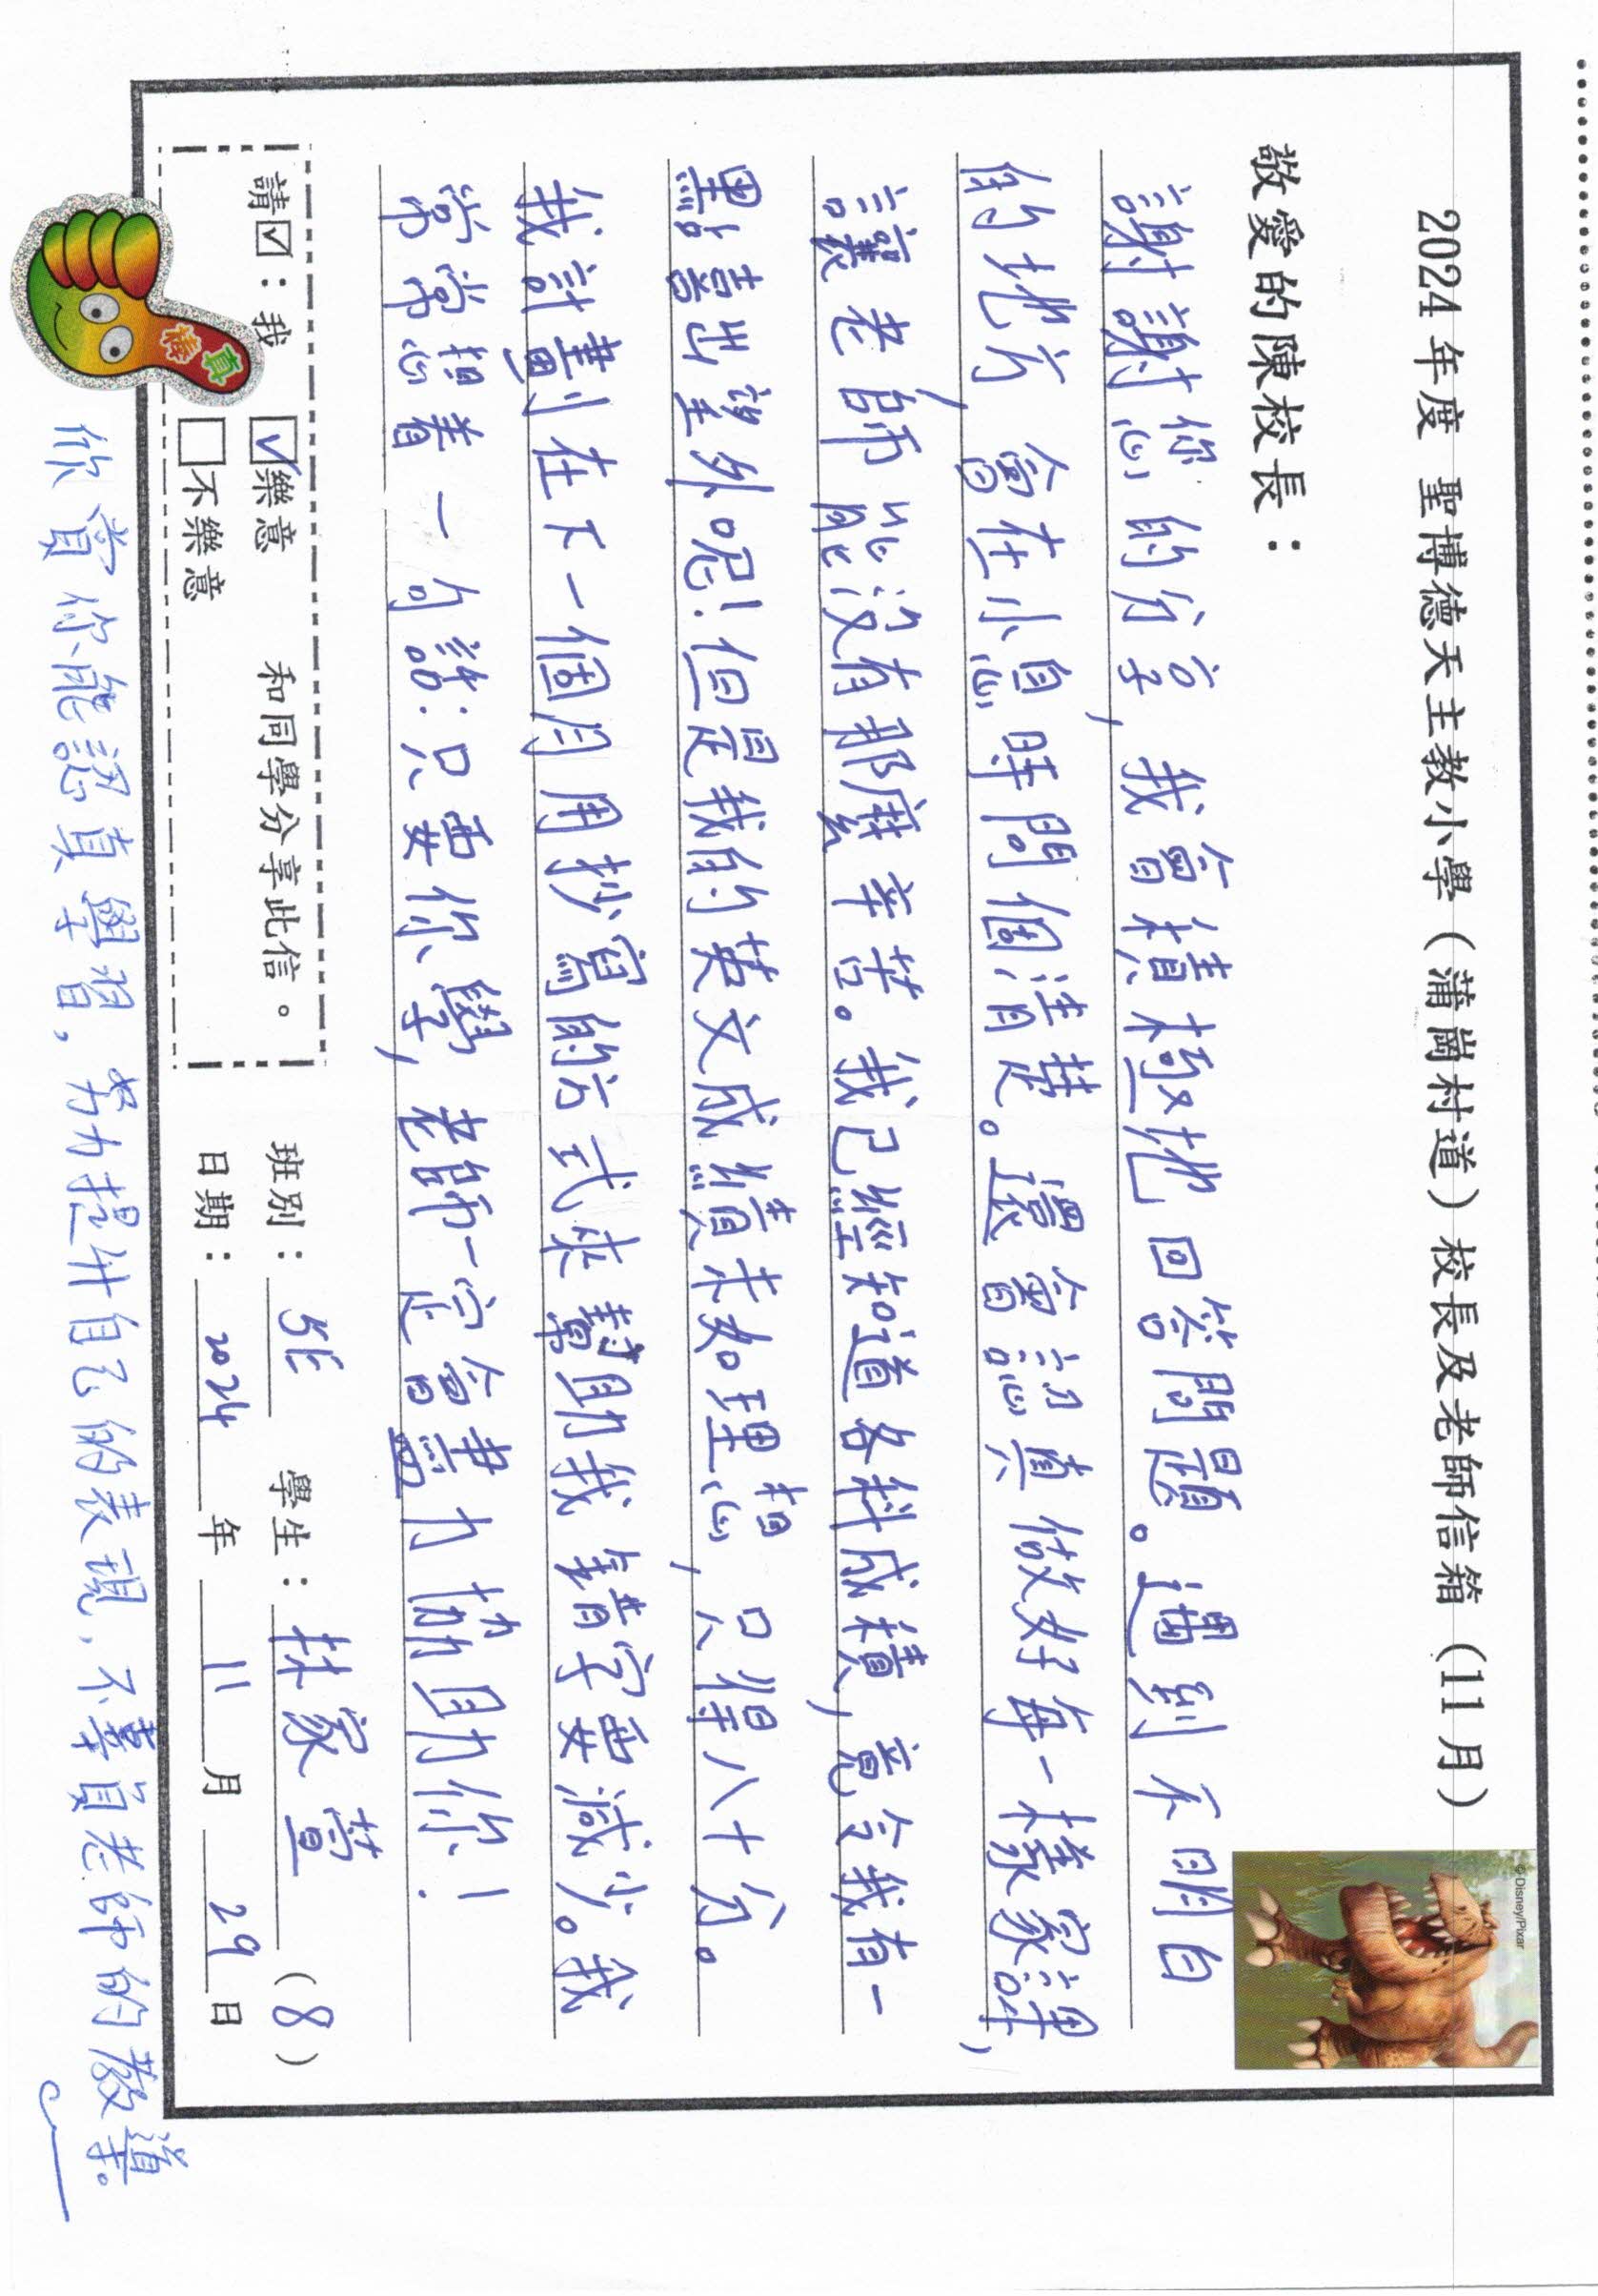 2024 年度 聖博德天主教小學（蒲崗村道）校長及老師信箱（11 月）
©Disney/Pixar
敬愛的陳校長：
謝謝您的分享，我會積極地回答問題。遇到不明白
的地方，會在小息時問個清楚。還會認真做好每一樣家課，
讓老師能沒有那麼辛苦。我已經知道各科成績，竟令我有一
點喜出望外呢！但是我的英文成績未如理想，只得八十分。
我計劃在下一個月用抄寫的方式來幫助我錯字要減少。我
常常想着一句話：只要你學，老師一定會盡力協助你！
請☑：我 ☑樂意 和同學分享此信。
□不樂意
班別：5E 學生：林家萱（8）
日期：2024年11月29日
真棒
欣賞你能認真學習，努力提升自己的表現，不辜負老師的教導。